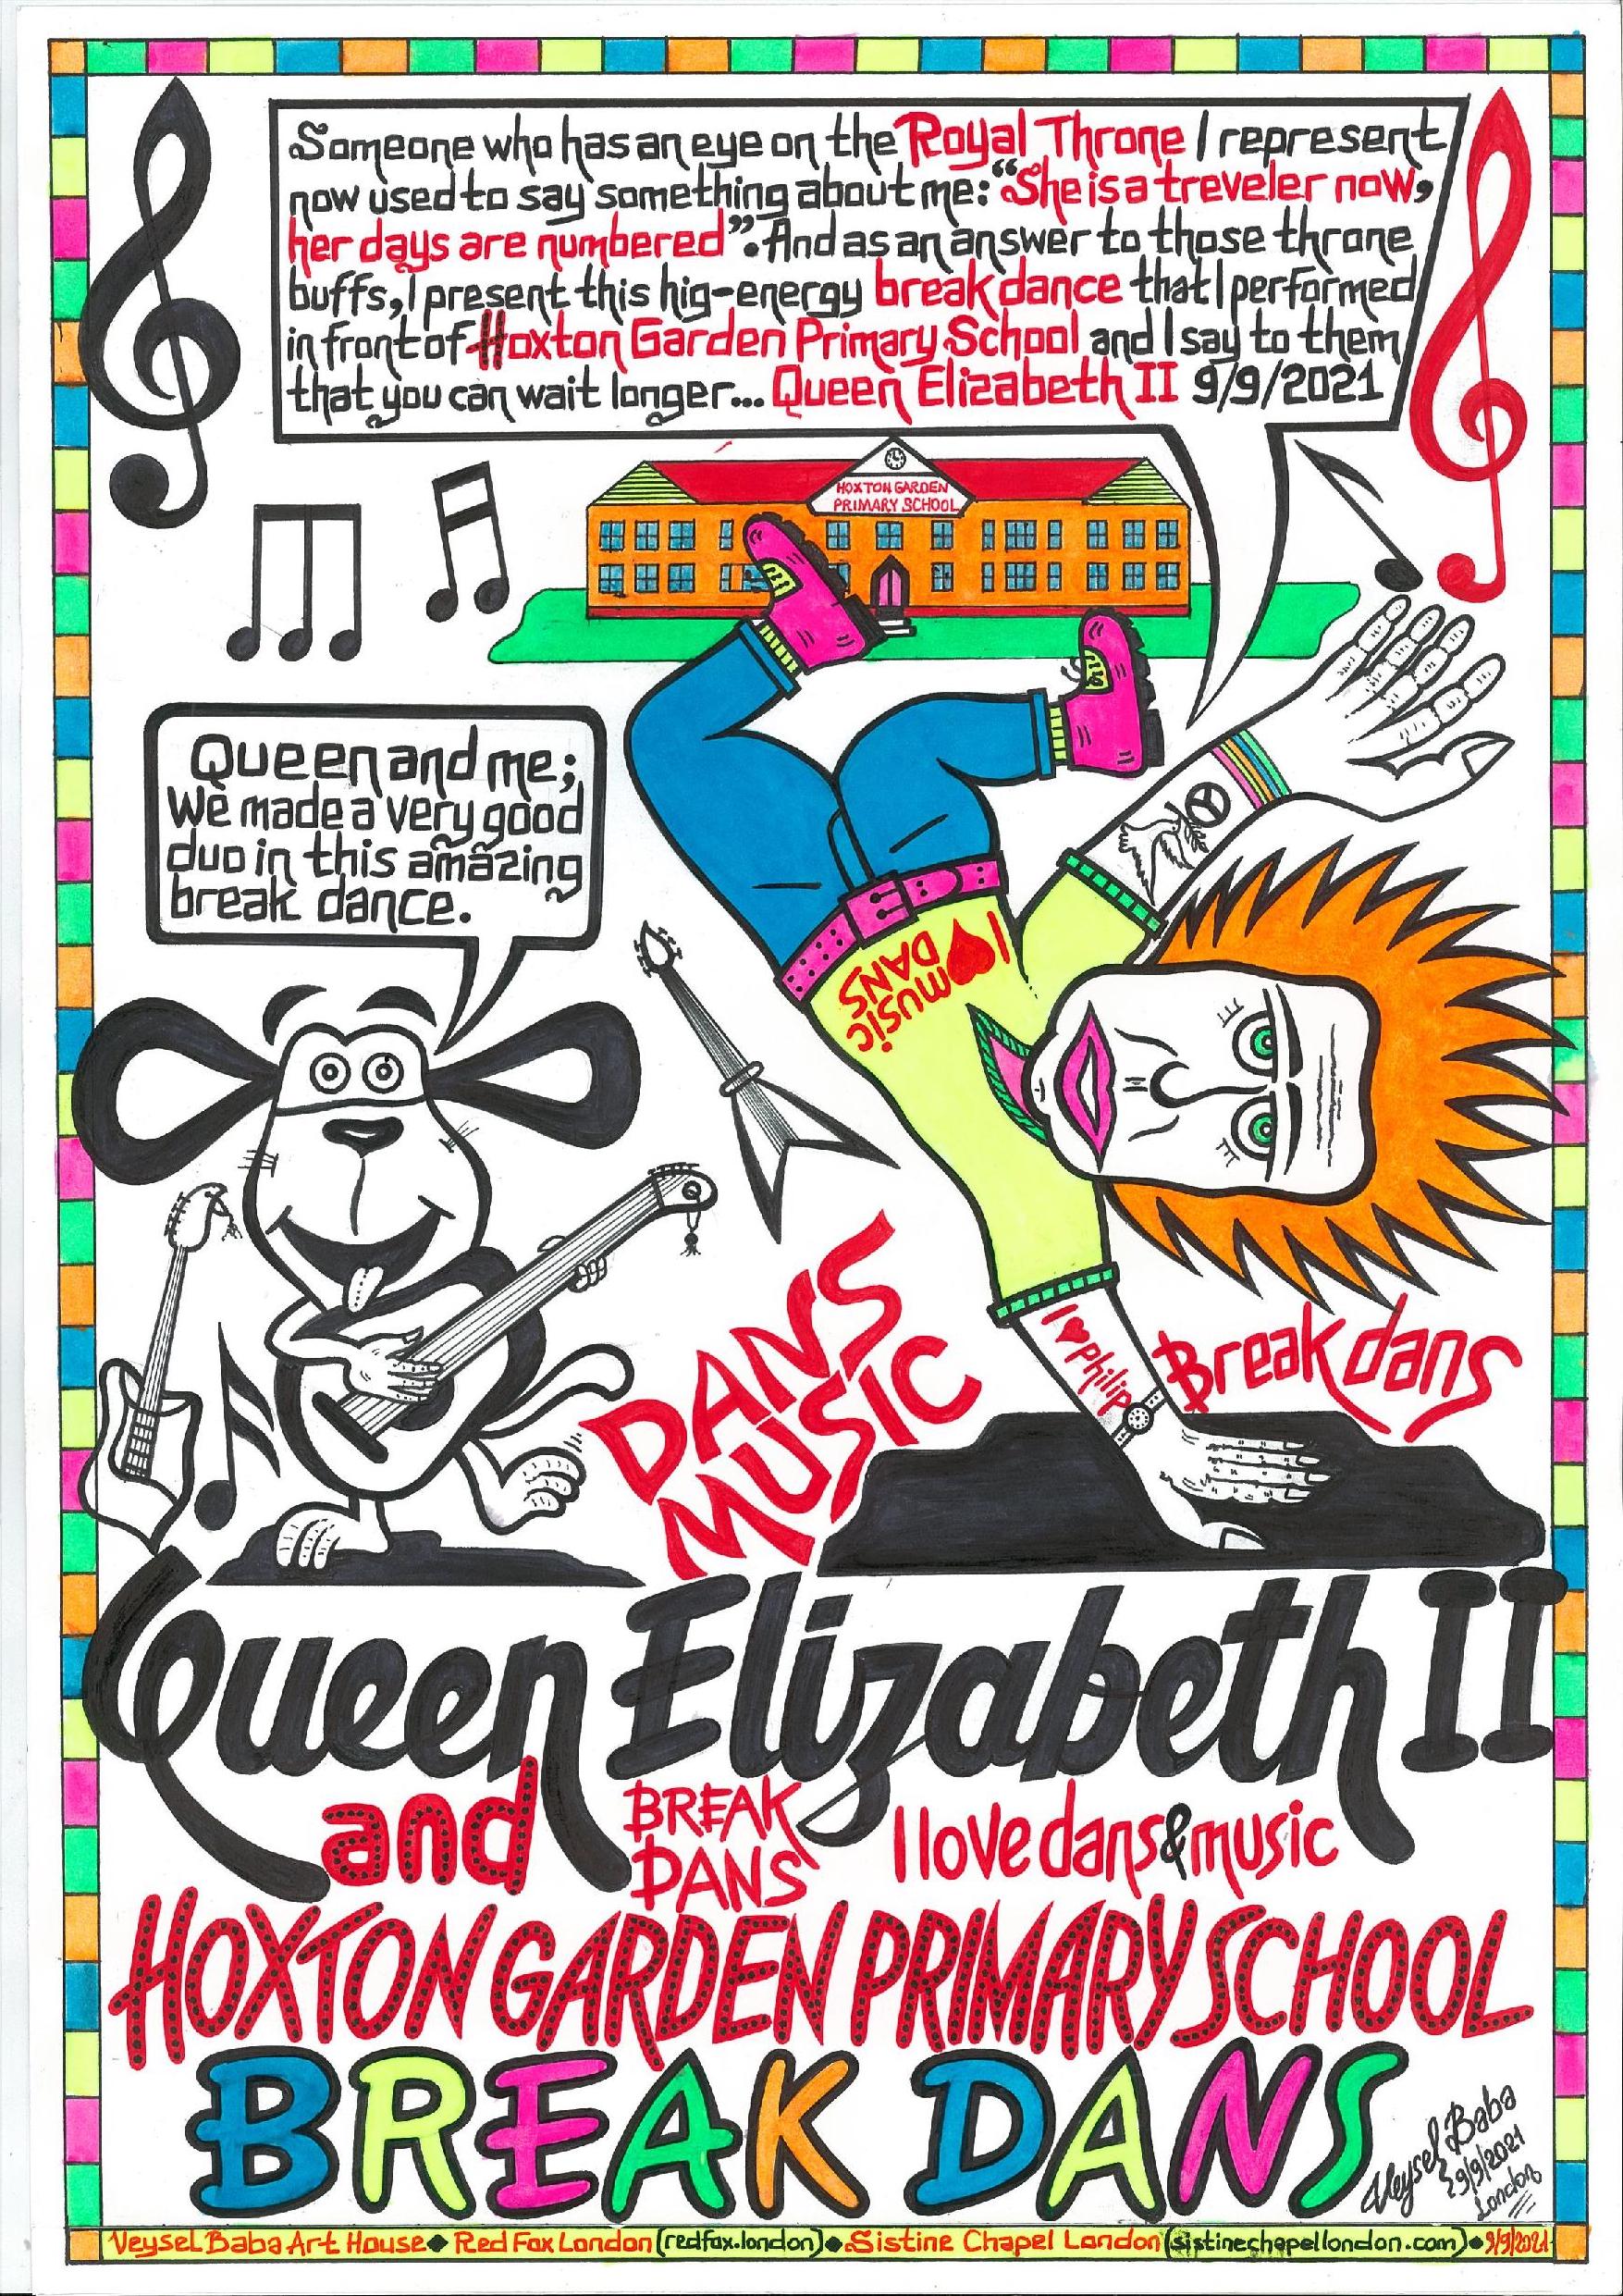 Someone who has an eye on the Royal Throne I represent
now used to say something about me: “She is a treveler now,
her days are numbered”. And as an answer to those throne
buffs, I present this hig-energy break dance that I performed
in front of Hoxton Garden Primary School and I say to them
that you can wait longer... Queen Elizabeth II 9/9/2021
HOXTON GARDEN
PRIMARY SCHOOL
Queen and me;
We made a very good
duo in this amazing
break dance.
I ♥ music
DANS
I ♥ Philip
Break dans
DANS
MUSIC
Queen Elizabeth II
and
BREAK
DANS
I love dans & music
HOXTON GARDEN PRIMARY SCHOOL
BREAK DANS
Veysel Baba
9/9/2021
London
Veysel Baba Art House ◆ Red Fox London (redfox.london) ◆ Sistine Chapel London (sistinechapellondon.com) ◆ 9/9/2021